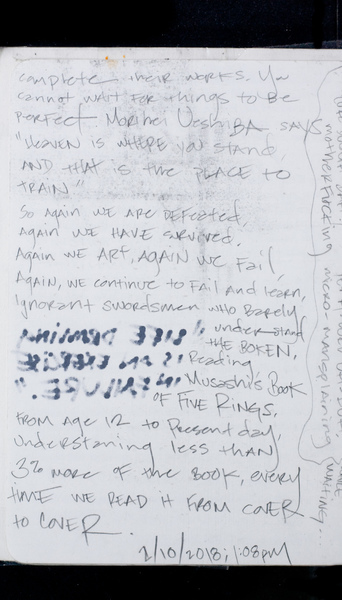 complete their works. You
cannot wait for things to be
perfect. Morihei Ueshiba says
"Heaven is where you stand,
and that is the place to
train"
So again we are defeated,
Again we have survived.
Again we art, again we fail,
Again, we continue to fail and learn,
Ignorant swordsmen who barely
understand
the boken,
Reading
Musashi's Book
of Five Rings.
from age 12 to present day,
understaning less than
3% more of the book, every
time we read it from cover
to cover.
2/10/2018; 1:08pm
"LIFE DRAWING
IS AN EXERCISE
IN FAILURE."
motherfucking micro mansplaining
waiting...